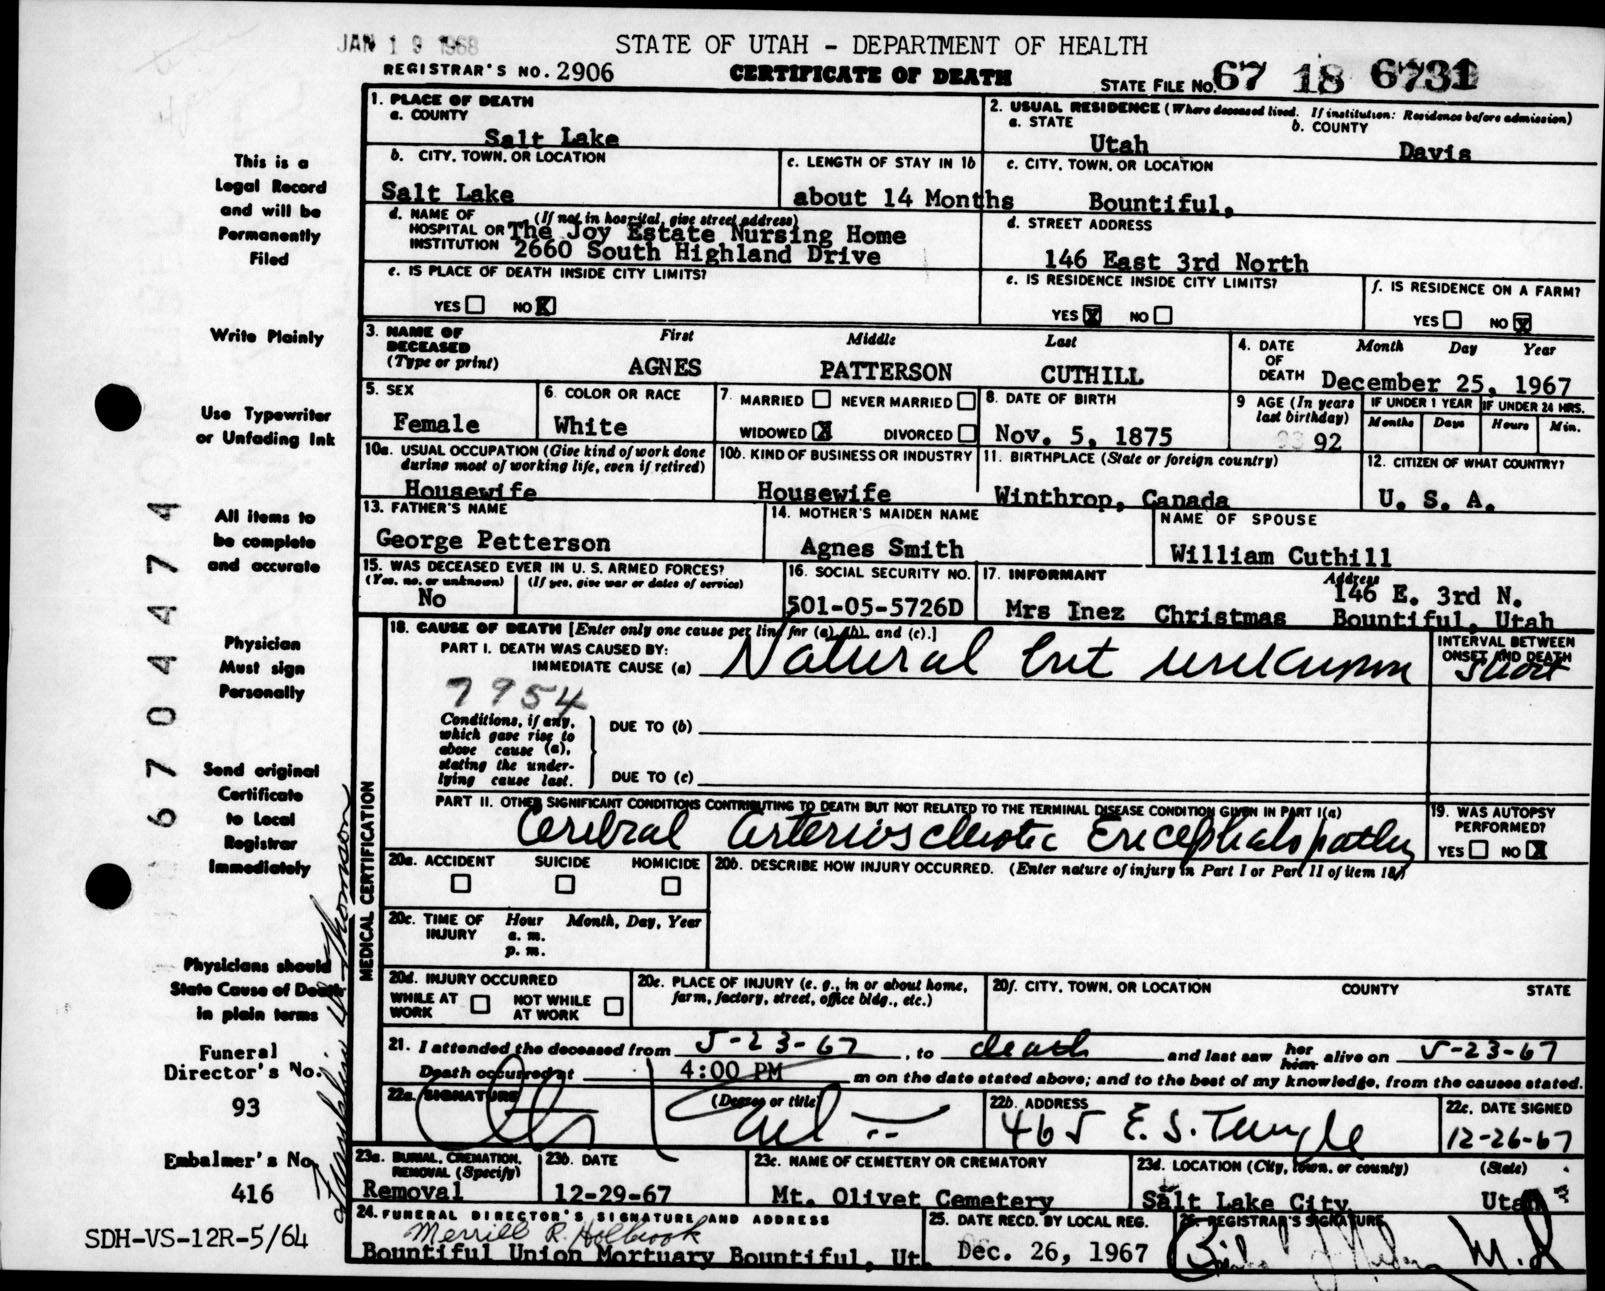 JAN 19 1968
STATE OF UTAH - DEPARTMENT OF HEALTH
REGISTRAR'S NO. 2906
CERTIFICATE OF DEATH
STATE FILE NO. 67 18 6731
1. PLACE OF DEATH
a. COUNTY
Salt Lake
2. USUAL RESIDENCE (Where deceased lived. If institution: Residence before admission)
a. STATE
b. COUNTY
Utah
Davis
b. CITY, TOWN, OR LOCATION
Salt Lake
c. LENGTH OF STAY IN 1b
about 14 Months
c. CITY, TOWN, OR LOCATION
Bountiful,
d. NAME OF HOSPITAL OR INSTITUTION
(If not in hospital, give street address)
The Joy Estate Nursing Home
2660 South Highland Drive
d. STREET ADDRESS
146 East 3rd North
e. IS PLACE OF DEATH INSIDE CITY LIMITS?
YES NO X
e. IS RESIDENCE INSIDE CITY LIMITS?
YES X NO
f. IS RESIDENCE ON A FARM?
YES NO X
3. NAME OF DECEASED
(Type or print)
First Middle Last
AGNES PATTERSON CUTHILL
4. DATE OF DEATH
Month Day Year
December 25, 1967
5. SEX
Female
6. COLOR OR RACE
White
7. MARRIED NEVER MARRIED
WIDOWED X DIVORCED
8. DATE OF BIRTH
Nov. 5, 1875
9 AGE (In years last birthday)
92
IF UNDER 1 YEAR
Months Days
IF UNDER 24 HRS.
Hours Min.
10a. USUAL OCCUPATION (Give kind of work done during most of working life, even if retired)
Housewife
10b. KIND OF BUSINESS OR INDUSTRY
Housewife
11. BIRTHPLACE (State or foreign country)
Winthrop, Canada
12. CITIZEN OF WHAT COUNTRY?
U. S. A.
13. FATHER'S NAME
George Petterson
14. MOTHER'S MAIDEN NAME
Agnes Smith
NAME OF SPOUSE
William Cuthill
15. WAS DECEASED EVER IN U. S. ARMED FORCES?
(Yes, no, or unknown) (If yes, give war or dates of service)
No
16. SOCIAL SECURITY NO.
501-05-5726D
17. INFORMANT
Address
Mrs Inez Christmas
146 E. 3rd N.
Bountiful, Utah
18. CAUSE OF DEATH [Enter only one cause per line for (a), (b), and (c).]
PART I. DEATH WAS CAUSED BY:
IMMEDIATE CAUSE (a) Natural but unknown
INTERVAL BETWEEN ONSET AND DEATH
Short
7954
Conditions, if any, which gave rise to above cause (a), stating the underlying cause last.
DUE TO (b)
DUE TO (c)
PART II. OTHER SIGNIFICANT CONDITIONS CONTRIBUTING TO DEATH BUT NOT RELATED TO THE TERMINAL DISEASE CONDITION GIVEN IN PART I(a)
Cerebral arteriosclerotic Encephalopathy
19. WAS AUTOPSY PERFORMED?
YES NO X
MEDICAL CERTIFICATION
20a. ACCIDENT SUICIDE HOMICIDE
20b. DESCRIBE HOW INJURY OCCURRED. (Enter nature of injury in Part I or Part II of item 18.)
20c. TIME OF INJURY
Hour Month, Day, Year
a. m.
p. m.
20d. INJURY OCCURRED
WHILE AT WORK NOT WHILE AT WORK
20e. PLACE OF INJURY (e. g., in or about home, farm, factory, street, office bldg., etc.)
20f. CITY, TOWN, OR LOCATION COUNTY STATE
21. I attended the deceased from 5-23-67, to death and last saw her him alive on 5-23-67
Death occurred at 4:00 PM m on the date stated above; and to the best of my knowledge, from the causes stated.
22a. SIGNATURE
(Degree or title)
22b. ADDRESS
465 E. S. Temple
22c. DATE SIGNED
12-26-67
23a. BURIAL, CREMATION, REMOVAL (Specify)
Removal
23b. DATE
12-29-67
23c. NAME OF CEMETERY OR CREMATORY
Mt. Olivet Cemetery
23d. LOCATION (City, town, or county) (State)
Salt Lake City, Utah
24. FUNERAL DIRECTOR'S SIGNATURE AND ADDRESS
Merrill R. Holbrook
Bountiful Union Mortuary Bountiful, Ut.
25. DATE RECD. BY LOCAL REG.
Dec. 26, 1967
26. REGISTRAR'S SIGNATURE
M.D
This is a
Legal Record
and will be
Permanently
Filed
Write Plainly
Use Typewriter
or Unfading Ink
All items to
be complete
and accurate
Physician
Must sign
Personally
Send original
Certificate
to Local
Registrar
Immediately
Physicians should
State Cause of Death
in plain terms
Funeral
Director's No.
93
Embalmer's No.
416
SDH-VS-12R-5/64
6704474